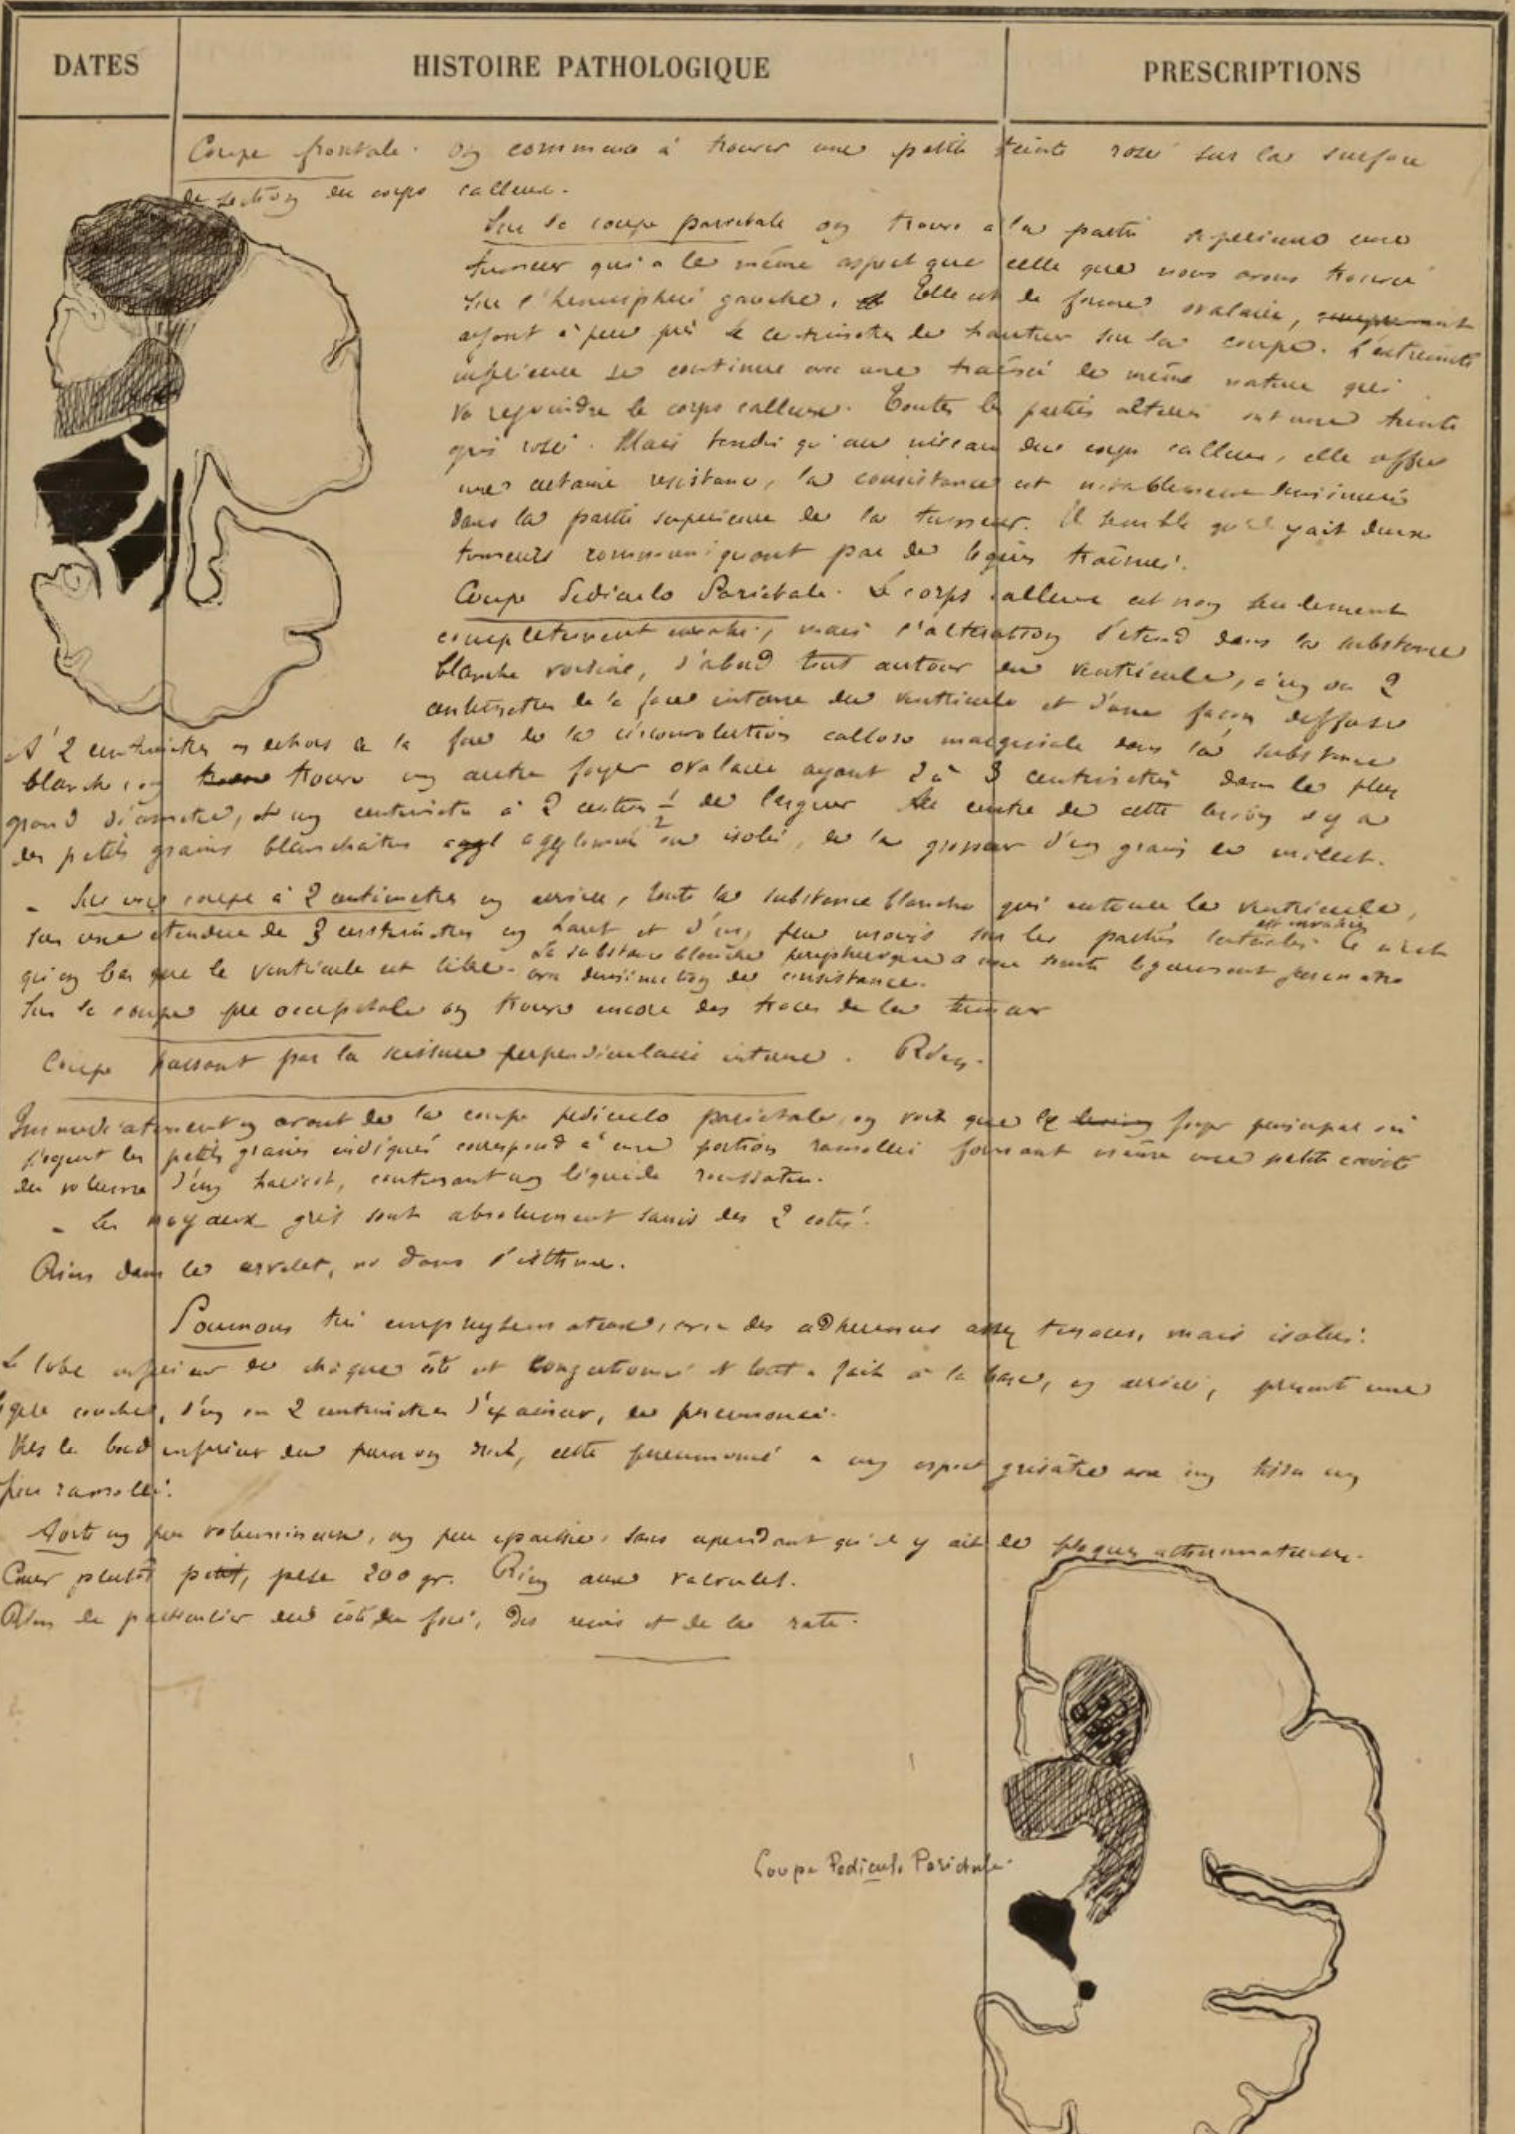 DATES
HISTOIRE PATHOLOGIQUE
PRESCRIPTIONS
Coupe frontale. On commence à trouver une petite teinte rosé sur la surface
de section du corps calleux.
Sur la coupe parietale on trouve a la partie superieure une
tumeur qui a le même aspect que celle que nous avons trouvée
sur l'hemisphere gauche. Elle est de forme ovalaire,
ayant à peu près le centimètre de hauteur sur la coupe. L'extremité
inferieure se continue avec une trainée de même nature qui
va rejoindre le corps calleux. Toutes les parties alterées ont une teinte
gris rosé. Mais tandis qu'au niveau du corps calleux, elle offre
une certaine resistance, la consistance est notablement diminuée
dans la partie superieure de la tumeur. Il semble qu'il y ait deux
tumeurs communiquant par de legères trainées.
Coupe Pediculo Parietale. Le corps calleux est non seulement
completement envahi, mais l'alteration s'etend dans la substance
blanche voisine, d'abord tout autour du ventricule, à un ou 2
centimetres de la face interne du ventricule et d'une façon diffuse
A 2 centimetres en dehors de la face de la circonvolution calloso marginale dans la substance
blanche on trouve un autre foyer ovalaire ayant 2 à 3 centimetres dans le plus
grand diametre, et un centimetre à 2 centim ½ de largeur. Au centre de cette lesion il y a
des petits grains blanchatres agglomerés ou isolés, de la grosseur d'un grain de millet.
- Sur une coupe à 2 centimetres en arriere, toute la substance blanche qui entoure le ventricule,
sur une etendue de 3 centimetres en haut et d'un peu moins sur les parties laterales est envahie
qu'en bas que le ventricule est libre. La substance blanche peripherique a une teinte legerement jaunatre
avec diminution de consistance.
Sur la coupe pre occipitale on trouve encore des traces de la tumeur
Coupe passant par la scissure perpendiculaire interne. Rien.
Immediatement en avant de la coupe pediculo parietale, on voit que le foyer principal où
siegent les petits grains indiqués correspond à une portion ramollie formant même une petite cavité
du volume d'un haricot, contenant un liquide roussatre.
- Les noyaux gris sont absolument sains des 2 cotés.
Rien dans le cervelet, ni dans l'isthme.
Poumons très emphysemateux, avec des adherences assez tenaces, mais isolées.
Le lobe inferieur de chaque côté est congestionné et tout a fait à la base, en arriere, presente une
legere couche, d'un ou 2 centimetres d'epaisseur, de pneumonie.
Vers le bord inferieur du poumon droit, cette pneumonie a un aspect grisâtre avec un tissu un
peu ramolli.
Aorte un peu volumineuse, un peu epaissie, sans cependant qu'il y ait de plaques atheromateuses.
Coeur plutôt petit, pese 200 gr. Rien aux valvules.
Rien de particulier du côté du foie, des reins et de la rate.
Coupe Pediculo Parietale.